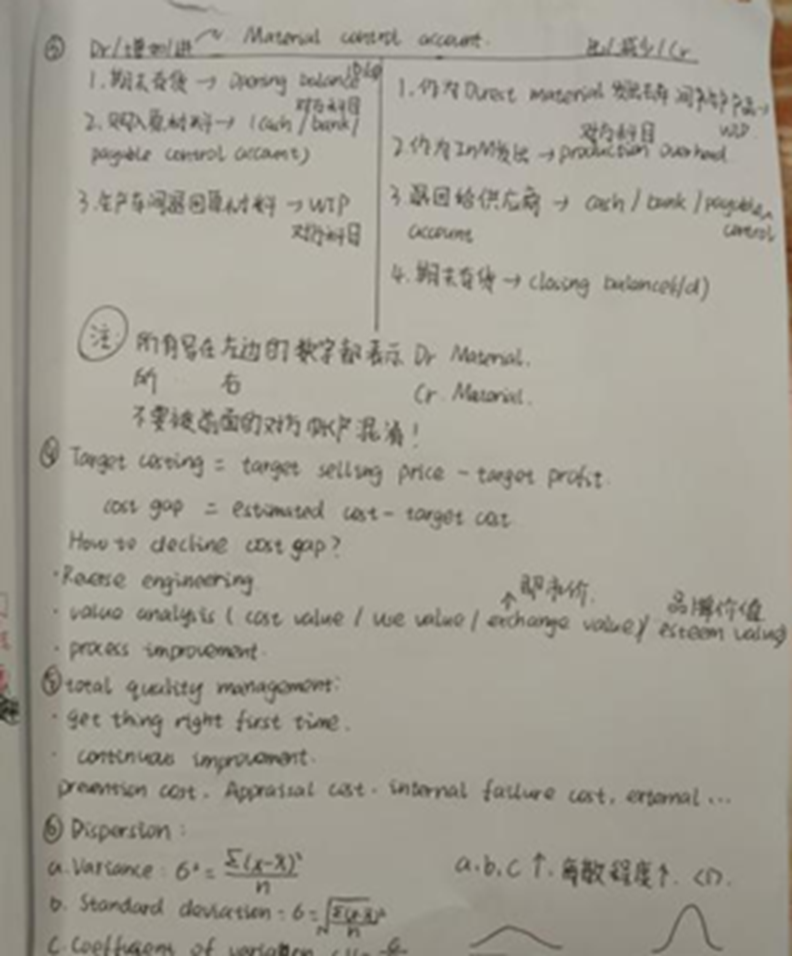 ③ Dr/增加/进 ~ Material control account. 出/减少/Cr
1.期末存货 → Opening balance(b/d)
对方科目
2.购入原材料 → (cash/bank/
payable control account)
3.生产车间退回原材料 → WIP
对方科目
1.作为Direct material 发出去车间为生产产品→
对方科目 WIP.
2作为InM发出 → production overhead
3退回给供应商 → cash/bank/payable
control
account
4.期末存货 → closing balance(c/d)
注: 所有写在左边的数字都表示 Dr Material.
所 右 Cr. Material.
不要被前面的对方账户混淆!
④ Target costing = target selling price - target profit.
cost gap = estimated cost - target cost
How to decline cost gap?
·Reverse engineering.
↑即市价. 品牌价值
· value analysis ( cost value / use value / exchange value / esteem value)
· process improvement.
⑤ total quality management:
· get thing right first time.
· continuous improvement.
prevention cost. Appraisal cost. internal failure cost, external...
⑥ Dispersion:
a.Variance: σ² = Σ(x-x̄)²/n a.b.c↑. 离散程度↑.
b. Standard deviation: σ = √Σ(x-x̄)²/n
c.Coefficient of variation